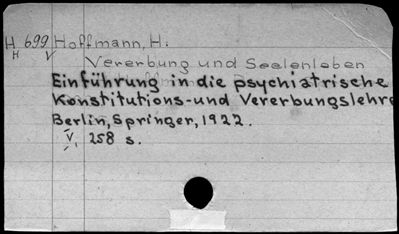 H 699 Hoffmann, H.
H V
Vererbung und Seelenleben
Einführung in die psychiatrische
Konstitutions-und Vererbungslehre
Berlin, Springer, 1922.
V, 258 s.